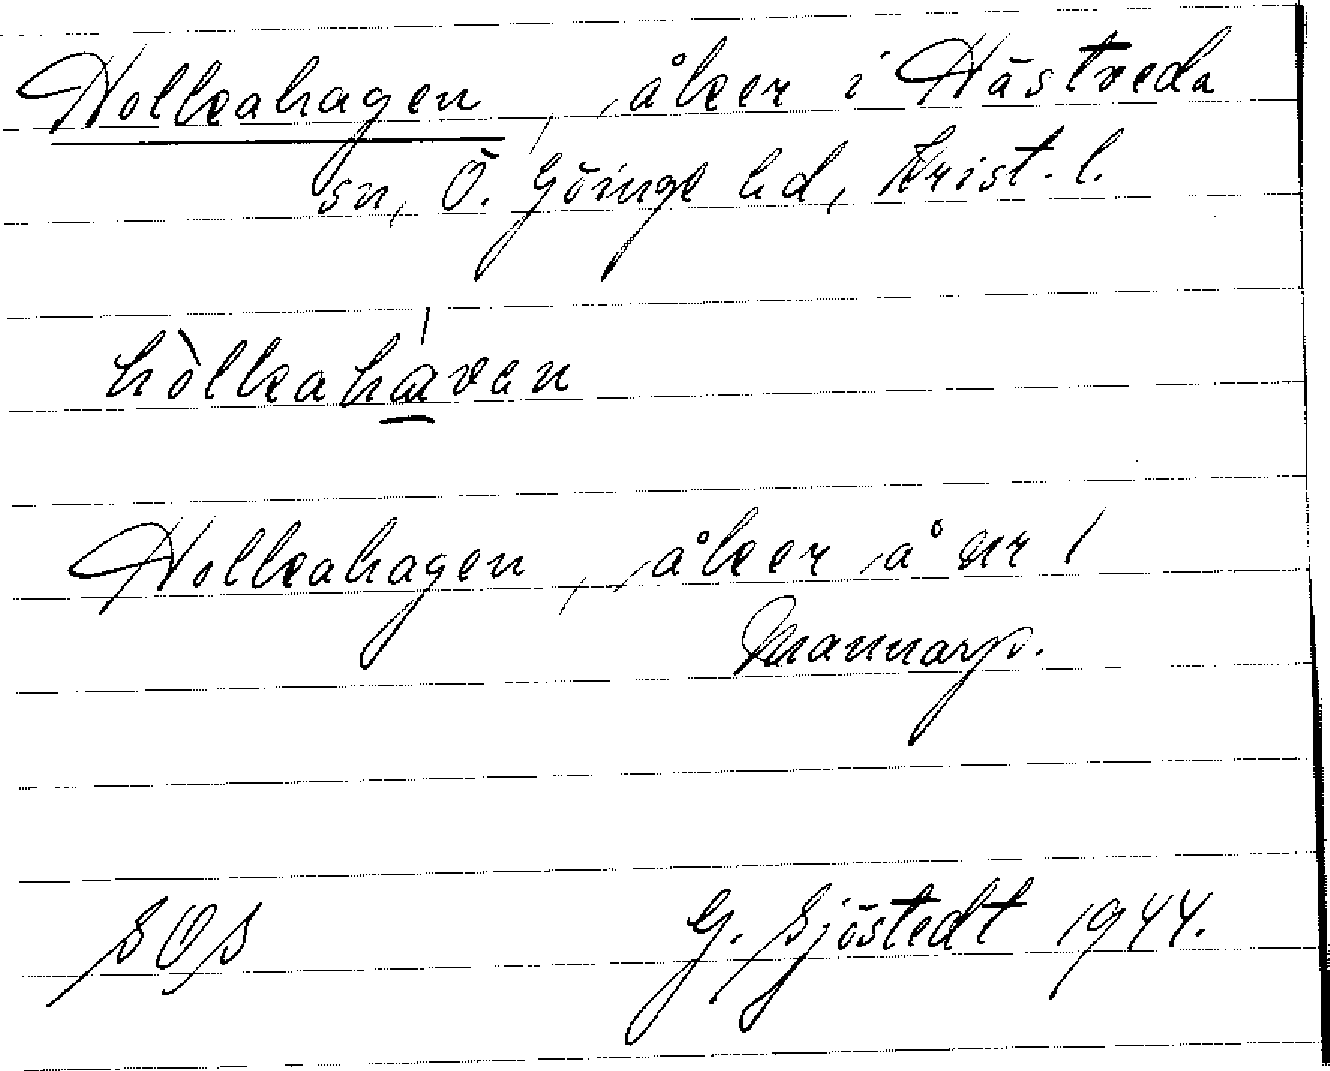 Holkahagen, åker i Hästveda
sn, Ö. Göinge hd, Krist. l.
hòlkahávan
Holkahagen, åker å nr 1
Mannarp.
SOS G. Sjöstedt 1944.